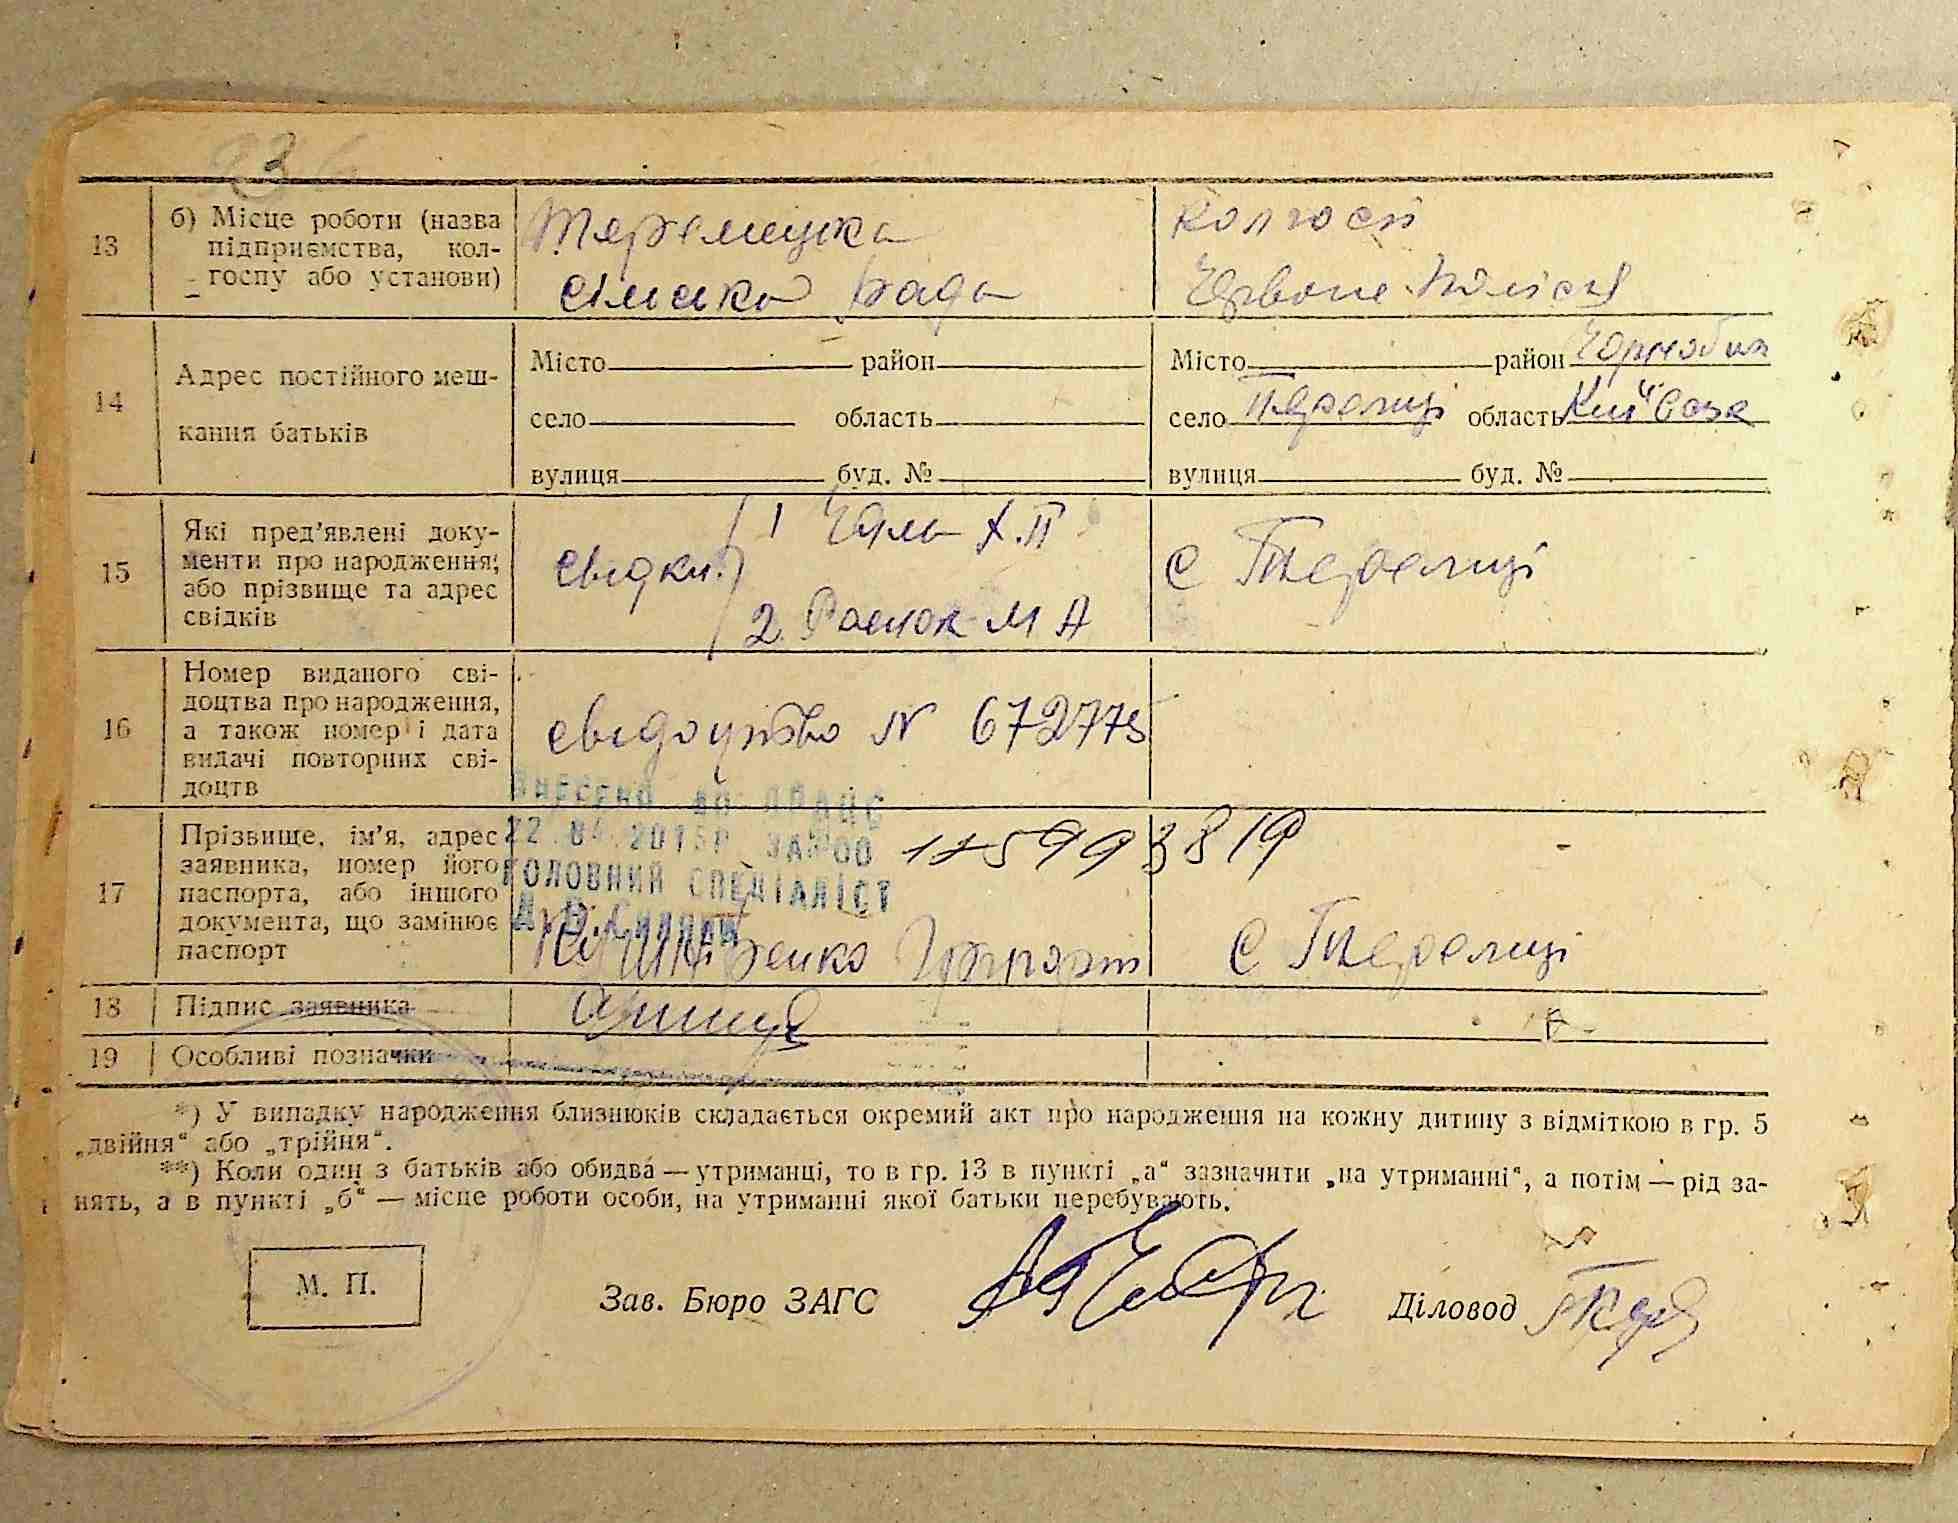 13
б) Місце роботи (назва
підприємства, кол-
госпу або установи)
Теремецька
сільська рада
Колгосп
Червоне Полісся
14
Адрес постійного меш-
кання батьків
Місто район
село область
вулиця буд. №
Місто район Чорнобил
село Теремці область Київська
вулиця буд. №
15
Які пред’явлені доку-
менти про народження;
або прізвище та адрес
свідків
свідки:
1 Х.П
2. М А
с Теремці
16
Номер виданого сві-
доцтва про народження,
а також номер і дата
видачі повторних сві-
доцтв
свідоцтво N 672775
ВНЕСЕНО ДО ДРАЦС
22.04.2015Р. ЗА №00
ГОЛОВНИЙ СПЕЦІАЛІСТ
17
Прізвище, ім’я, адрес
заявника, номер його
паспорта, або іншого
документа, що замінює
паспорт
Кушніренко Григорій
с Теремці
18
Підпис заявника
19
Особливі позначки
*) У випадку народження близнюків складається окремий акт про народження на кожну дитину з відміткою в гр. 5
„двійня“ або „трійня“.
**) Коли один з батьків або обидва — утриманці, то в гр. 13 в пункті „а“ зазначити „на утриманні“, а потім — рід за-
нять, а в пункті „б“ — місце роботи особи, на утриманні якої батьки перебувають.
М. П.
Зав. Бюро ЗАГС
Діловод